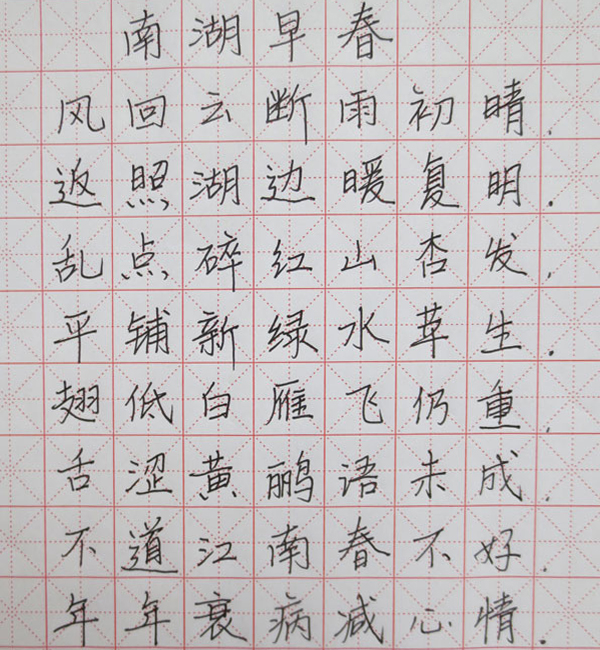 南湖早春
风回云断雨初晴.
返照湖边暖复明.
乱点碎红山杏发,
平铺新绿水苹生.
翅低白雁飞仍重.
舌涩黄鹂语未成.
不道江南春不好.
年年衰病减心情.